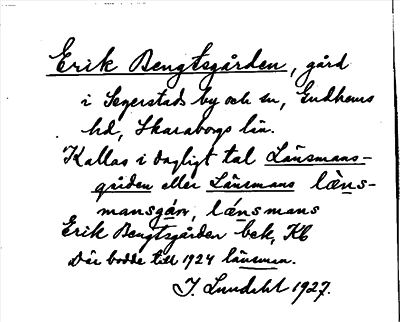 Erik Bengtsgården, gård
i Segerstads by och sn, Gudhems
hd, Skaraborgs län.
Kallas i dagligt tal Länsmans-
gården eller Länsmans läns-
mansgárn, lánsmans
Erik Bengtsgården bek, Kb
Där bodde till 1924 länsman.
J. Lundahl 1927.